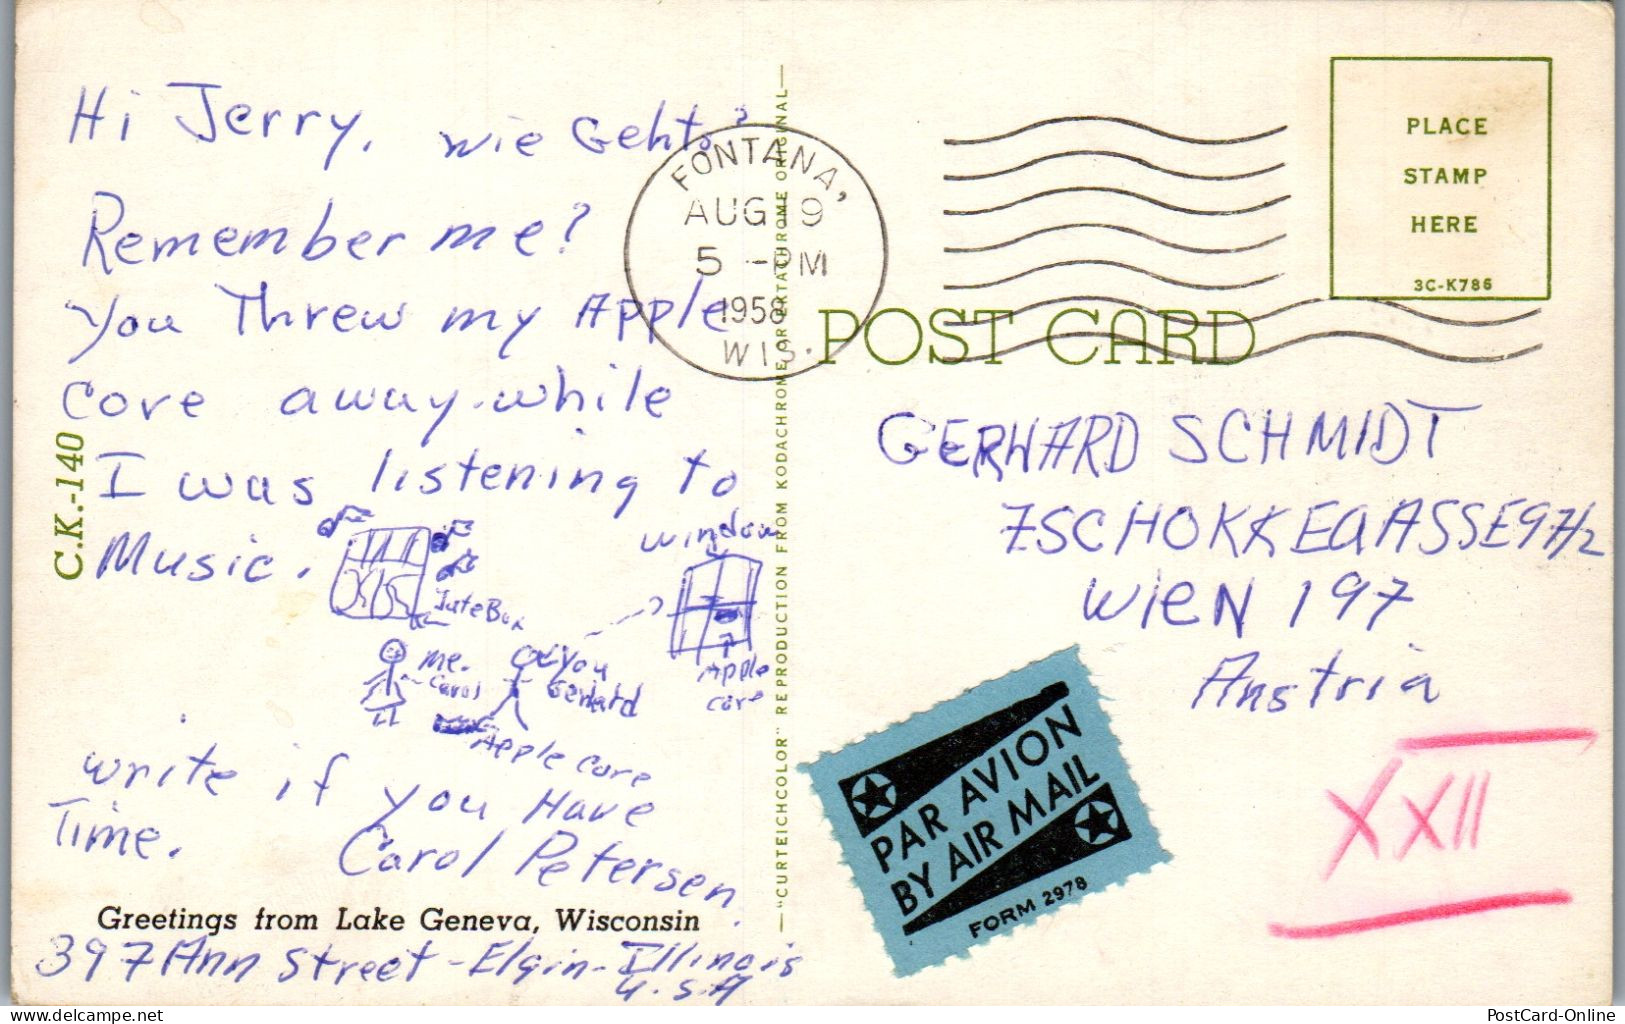 Hi Jerry, wie Gehts?
Remember me?
You Threw my Apple
core away while
I was listening to
Music.
JuteBox
window
me.
Carol
you
Gerhard
Apple
core
Apple Core
write if you Have
Time.
Carol Petersen
Greetings from Lake Geneva, Wisconsin
397 Ann Street - Elgin - Illinois
U.S.A
C.K.-140
—"CURTEICHCOLOR" REPRODUCTION FROM KODACHROME OR EKTACHROME ORIGINAL—
FONTANA,
AUG 19
5 - PM
1958
WIS.
PLACE
STAMP
HERE
3C-K786
POST CARD
GERHARD SCHMIDT
ZSCHOKKEGASSE 97/2
WIEN 197
Austria
PAR AVION
BY AIR MAIL
FORM 2978
XXII
PostCard-Online
the-best-of-pcards.delcampe.net